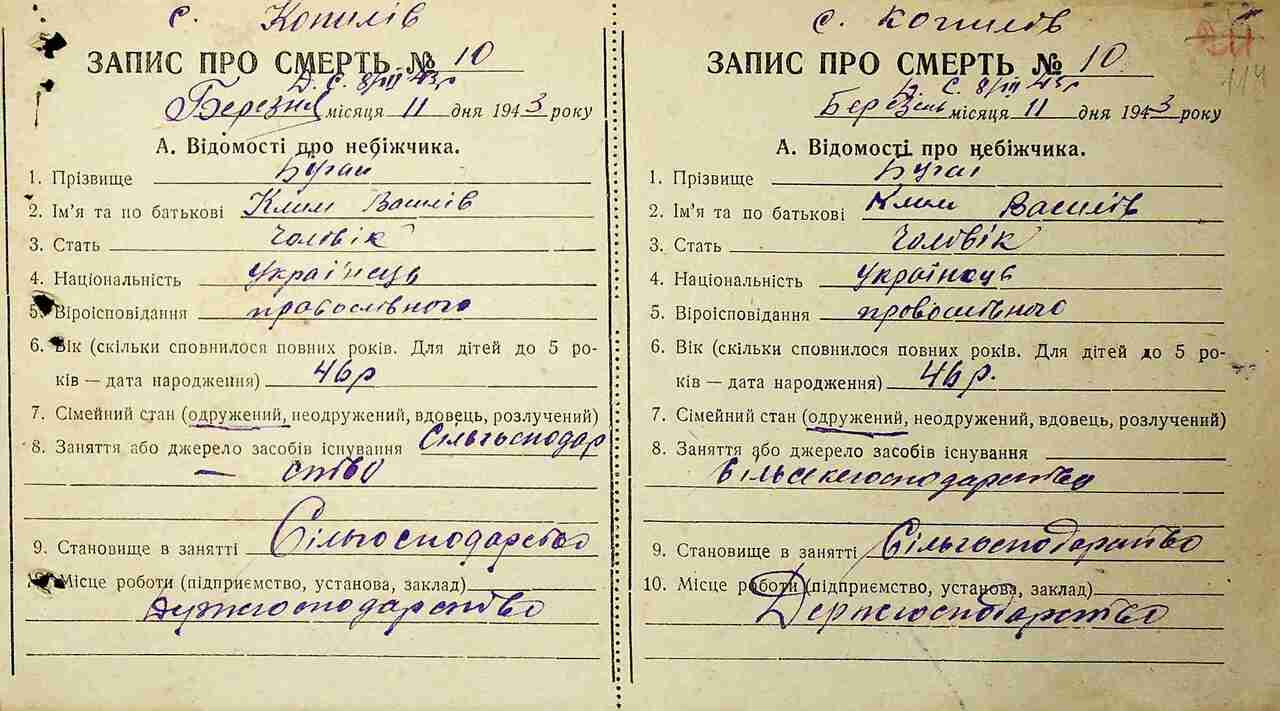 с. Копилів
ЗАПИС ПРО СМЕРТЬ № 10
Д. С. 8/III 43р
Березня місяця 11 дня 1943 року
А. Відомості про небіжчика.
1. Прізвище Бугай
2. Ім'я та по батькові Клим Василів
3. Стать чоловік
4. Національність Українець
5. Віроісповідання провославного
6. Вік (скільки сповнилося повних років. Для дітей до 5 ро-
ків — дата народження) 46р
7. Сімейний стан (одружений, неодружений, вдовець, розлучений)
8. Заняття або джерело засобів існування Сільгосподар
— ство
9. Становище в занятті Сільгосподарство
10. Місце роботи (підприємство, установа, заклад)
с. Копилов
ЗАПИС ПРО СМЕРТЬ № 10
С. 8/III 43р
Березень місяця 11 дня 1943 року
А. Відомості про небіжчика.
1. Прізвище Бугай
2. Ім'я та по батькові Клим Василів
3. Стать Чоловік
4. Національність Українець
5. Віроісповідання провославного
6. Вік (скільки сповнилося повних років. Для дітей до 5 ро-
ків — дата народження) 46р.
7. Сімейний стан (одружений, неодружений, вдовець, розлучений)
8. Заняття або джерело засобів існування
9. Становище в занятті Сільгосподарство
10. Місце роботи (підприємство, установа, заклад)
Держгосподарство